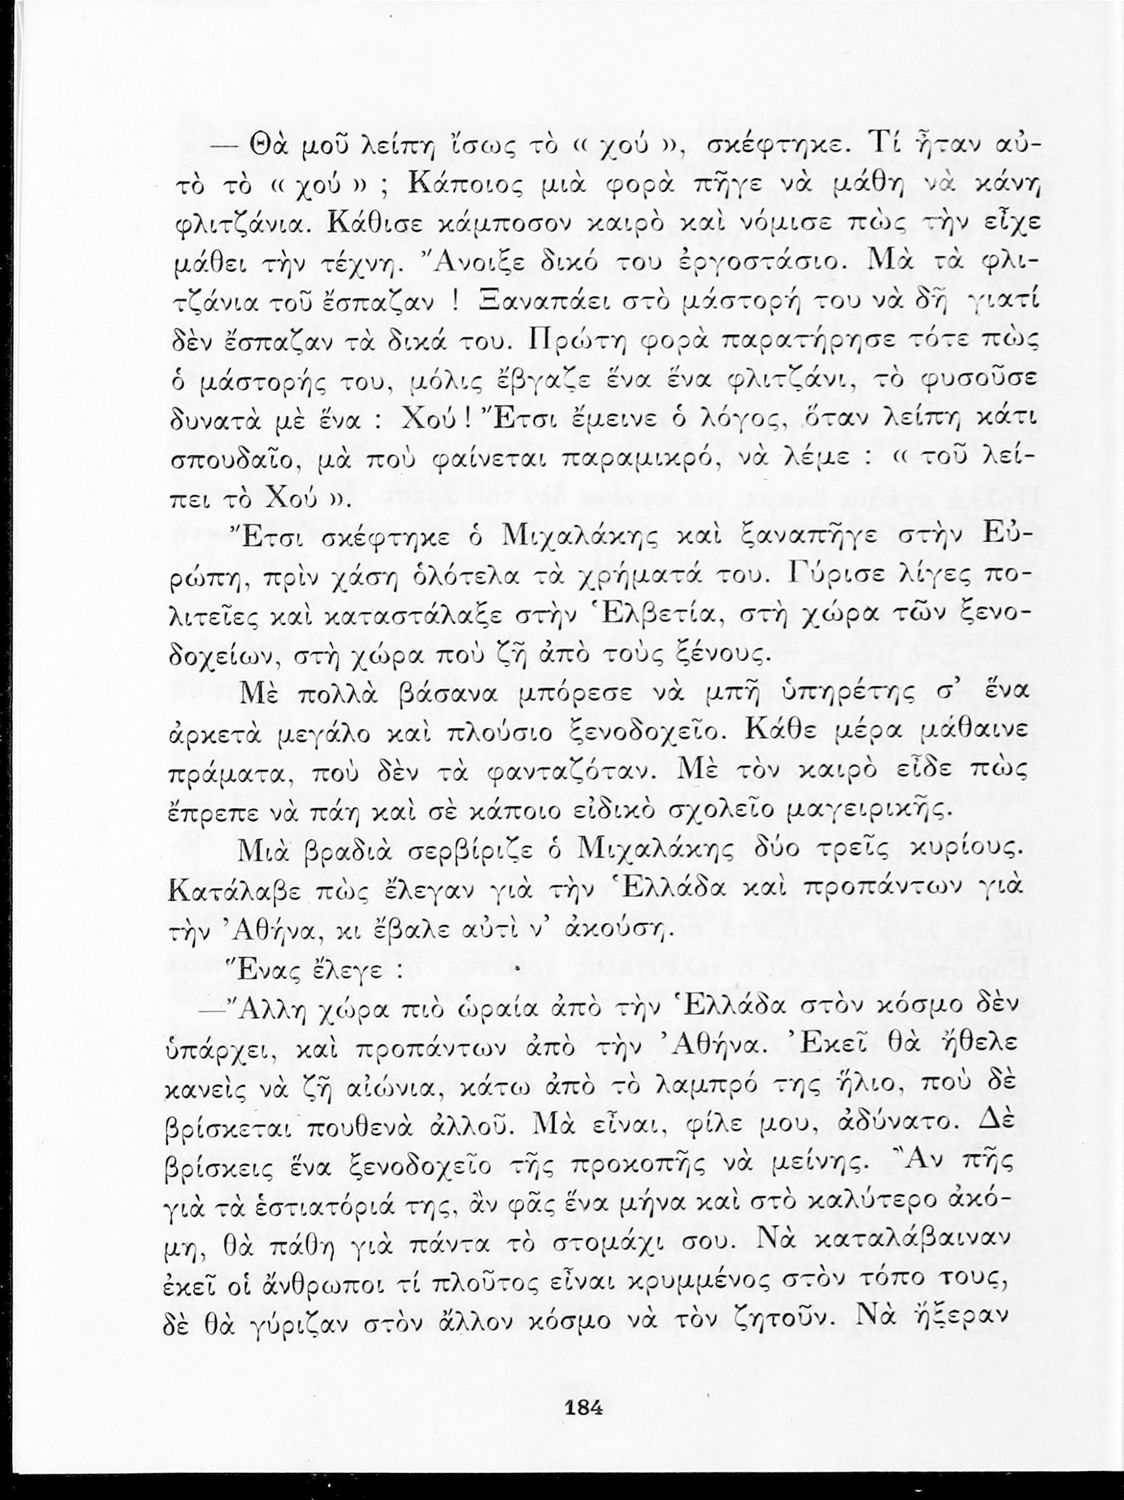 — Θὰ μοῦ λείπη ἴσως τὸ « χού », σκέφτηκε. Τί ἦταν αὐ-
τὸ τὸ « χού » ; Κάποιος μιὰ φορὰ πῆγε νὰ μάθη νὰ κάνη
φλιτζάνια. Κάθισε κάμποσον καιρὸ καὶ νόμισε πὼς τὴν εἶχε
μάθει τὴν τέχνη. Ἄνοιξε δικό του ἐργοστάσιο. Μὰ τὰ φλι-
τζάνια τοῦ ἔσπαζαν ! Ξαναπάει στὸ μάστορή του νὰ δῆ γιατί
δὲν ἔσπαζαν τὰ δικά του. Πρώτη φορὰ παρατήρησε τότε πὼς
ὁ μάστορής του, μόλις ἔβγαζε ἕνα ἕνα φλιτζάνι, τὸ φυσοῦσε
δυνατὰ μὲ ἕνα : Χού! Ἔτσι ἔμεινε ὁ λόγος, ὅταν λείπη κάτι
σπουδαῖο, μὰ ποὺ φαίνεται παραμικρό, νὰ λέμε : « τοῦ λεί-
πει τὸ Χού ».
Ἔτσι σκέφτηκε ὁ Μιχαλάκης καὶ ξαναπῆγε στὴν Εὐ-
ρώπη, πρὶν χάση ὁλότελα τὰ χρήματά του. Γύρισε λίγες πο-
λιτεῖες καὶ καταστάλαξε στὴν Ἑλβετία, στὴ χώρα τῶν ξενο-
δοχείων, στὴ χώρα ποὺ ζῆ ἀπὸ τοὺς ξένους.
Μὲ πολλὰ βάσανα μπόρεσε νὰ μπῆ ὑπηρέτης σ' ἕνα
ἀρκετὰ μεγάλο καὶ πλούσιο ξενοδοχεῖο. Κάθε μέρα μάθαινε
πράματα, ποὺ δὲν τὰ φανταζόταν. Μὲ τὸν καιρὸ εἶδε πὼς
ἔπρεπε νὰ πάη καὶ σὲ κάποιο εἰδικὸ σχολεῖο μαγειρικῆς.
Μιὰ βραδιὰ σερβίριζε ὁ Μιχαλάκης δύο τρεῖς κυρίους.
Κατάλαβε πὼς ἔλεγαν γιὰ τὴν Ἑλλάδα καὶ προπάντων γιὰ
τὴν Ἀθήνα, κι ἔβαλε αὐτὶ ν' ἀκούση.
Ἕνας ἔλεγε :
—Ἄλλη χώρα πιὸ ὡραία ἀπὸ τὴν Ἑλλάδα στὸν κόσμο δὲν
ὑπάρχει, καὶ προπάντων ἀπὸ τὴν Ἀθήνα. Ἐκεῖ θὰ ἤθελε
κανεὶς νὰ ζῆ αἰώνια, κάτω ἀπὸ τὸ λαμπρό της ἥλιο, ποὺ δὲ
βρίσκεται πουθενὰ ἀλλοῦ. Μὰ εἶναι, φίλε μου, ἀδύνατο. Δὲ
βρίσκεις ἕνα ξενοδοχεῖο τῆς προκοπῆς νὰ μείνης. Ἂν πῆς
γιὰ τὰ ἑστιατόριά της, ἂν φᾶς ἕνα μήνα καὶ στὸ καλύτερο ἀκό-
μη, θὰ πάθη γιὰ πάντα τὸ στομάχι σου. Νὰ καταλάβαιναν
ἐκεῖ οἱ ἄνθρωποι τί πλοῦτος εἶναι κρυμμένος στὸν τόπο τους,
δὲ θὰ γύριζαν στὸν ἄλλον κόσμο νὰ τὸν ζητοῦν. Νὰ ἤξεραν
184